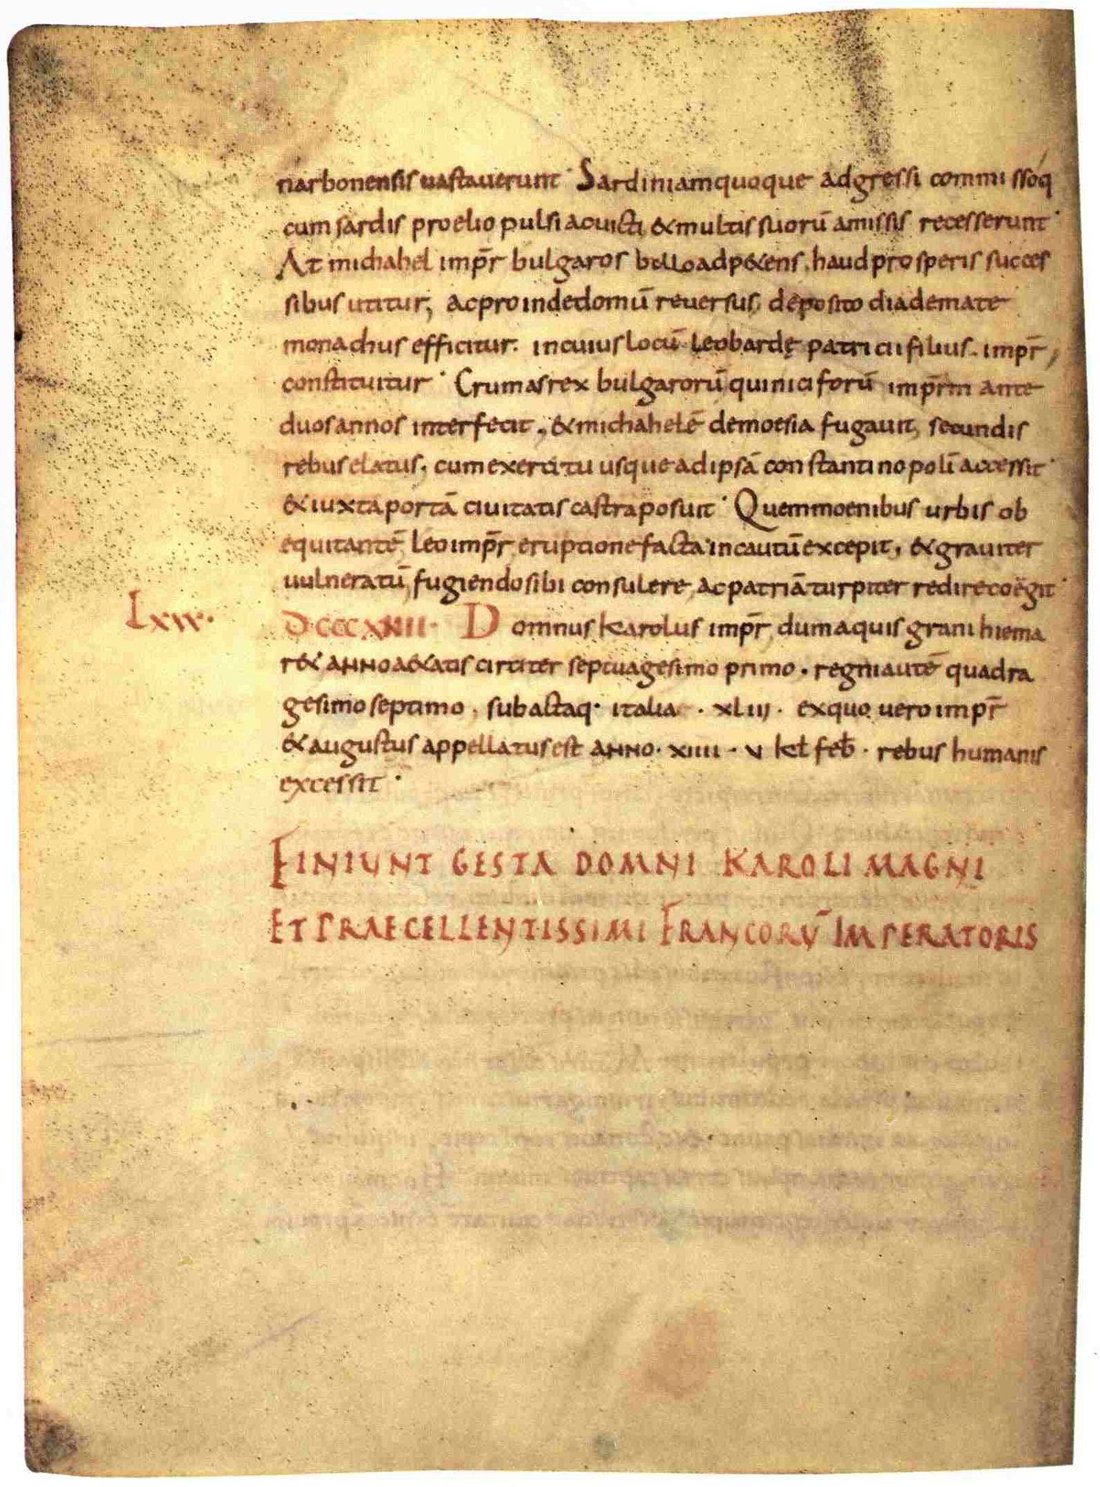 narbonensis uastauerunt· Sardiniam quoque adgressi commissoq́
cum sardis proelio pulsi ac uicti & multis suorū amissis recesserunt·
At michahel imp̄r bulgaros bello adp&ens, haud prosperis succes
sibus utitur, ac proinde domū reuersus, deposito diademate
monachus efficitur. in cuius locū leo bardę patricii filius. imp̄r,
constituitur· Crumas rex bulgarorū qui niciforū imp̄rm ante
duos annos interfecit, & michahelē de moesia fugauit, secundis
rebus elatus, cum exercitu usque ad ipsā constantinopolī accessit·
& iuxta portā ciuitatis castra posuit· Quem moenibus urbis ob
equitantē leo imp̄r eruptione facta incautū excepit, & grauiter
uulneratū, fugiendo sibi consulere, ac patriā turpiter redire coëgit·
Lxvv· DCCCXIIII· Domnus karolus imp̄r, dum aquisgrani hiema
r& anno a&atis circiter septuagesimo primo. regni autē quadra
gesimo septimo, subactaq· italia ·xliij· ex quo uero imp̄r
& augustus appellatus est anno·xiiii· v kƚ feb̄· rebus humanis
excessit·
FINIUNT GESTA DOMNI KAROLI MAGNI
ET PRAECELLENTISSIMI FRANCORŪ IMPERATORIS